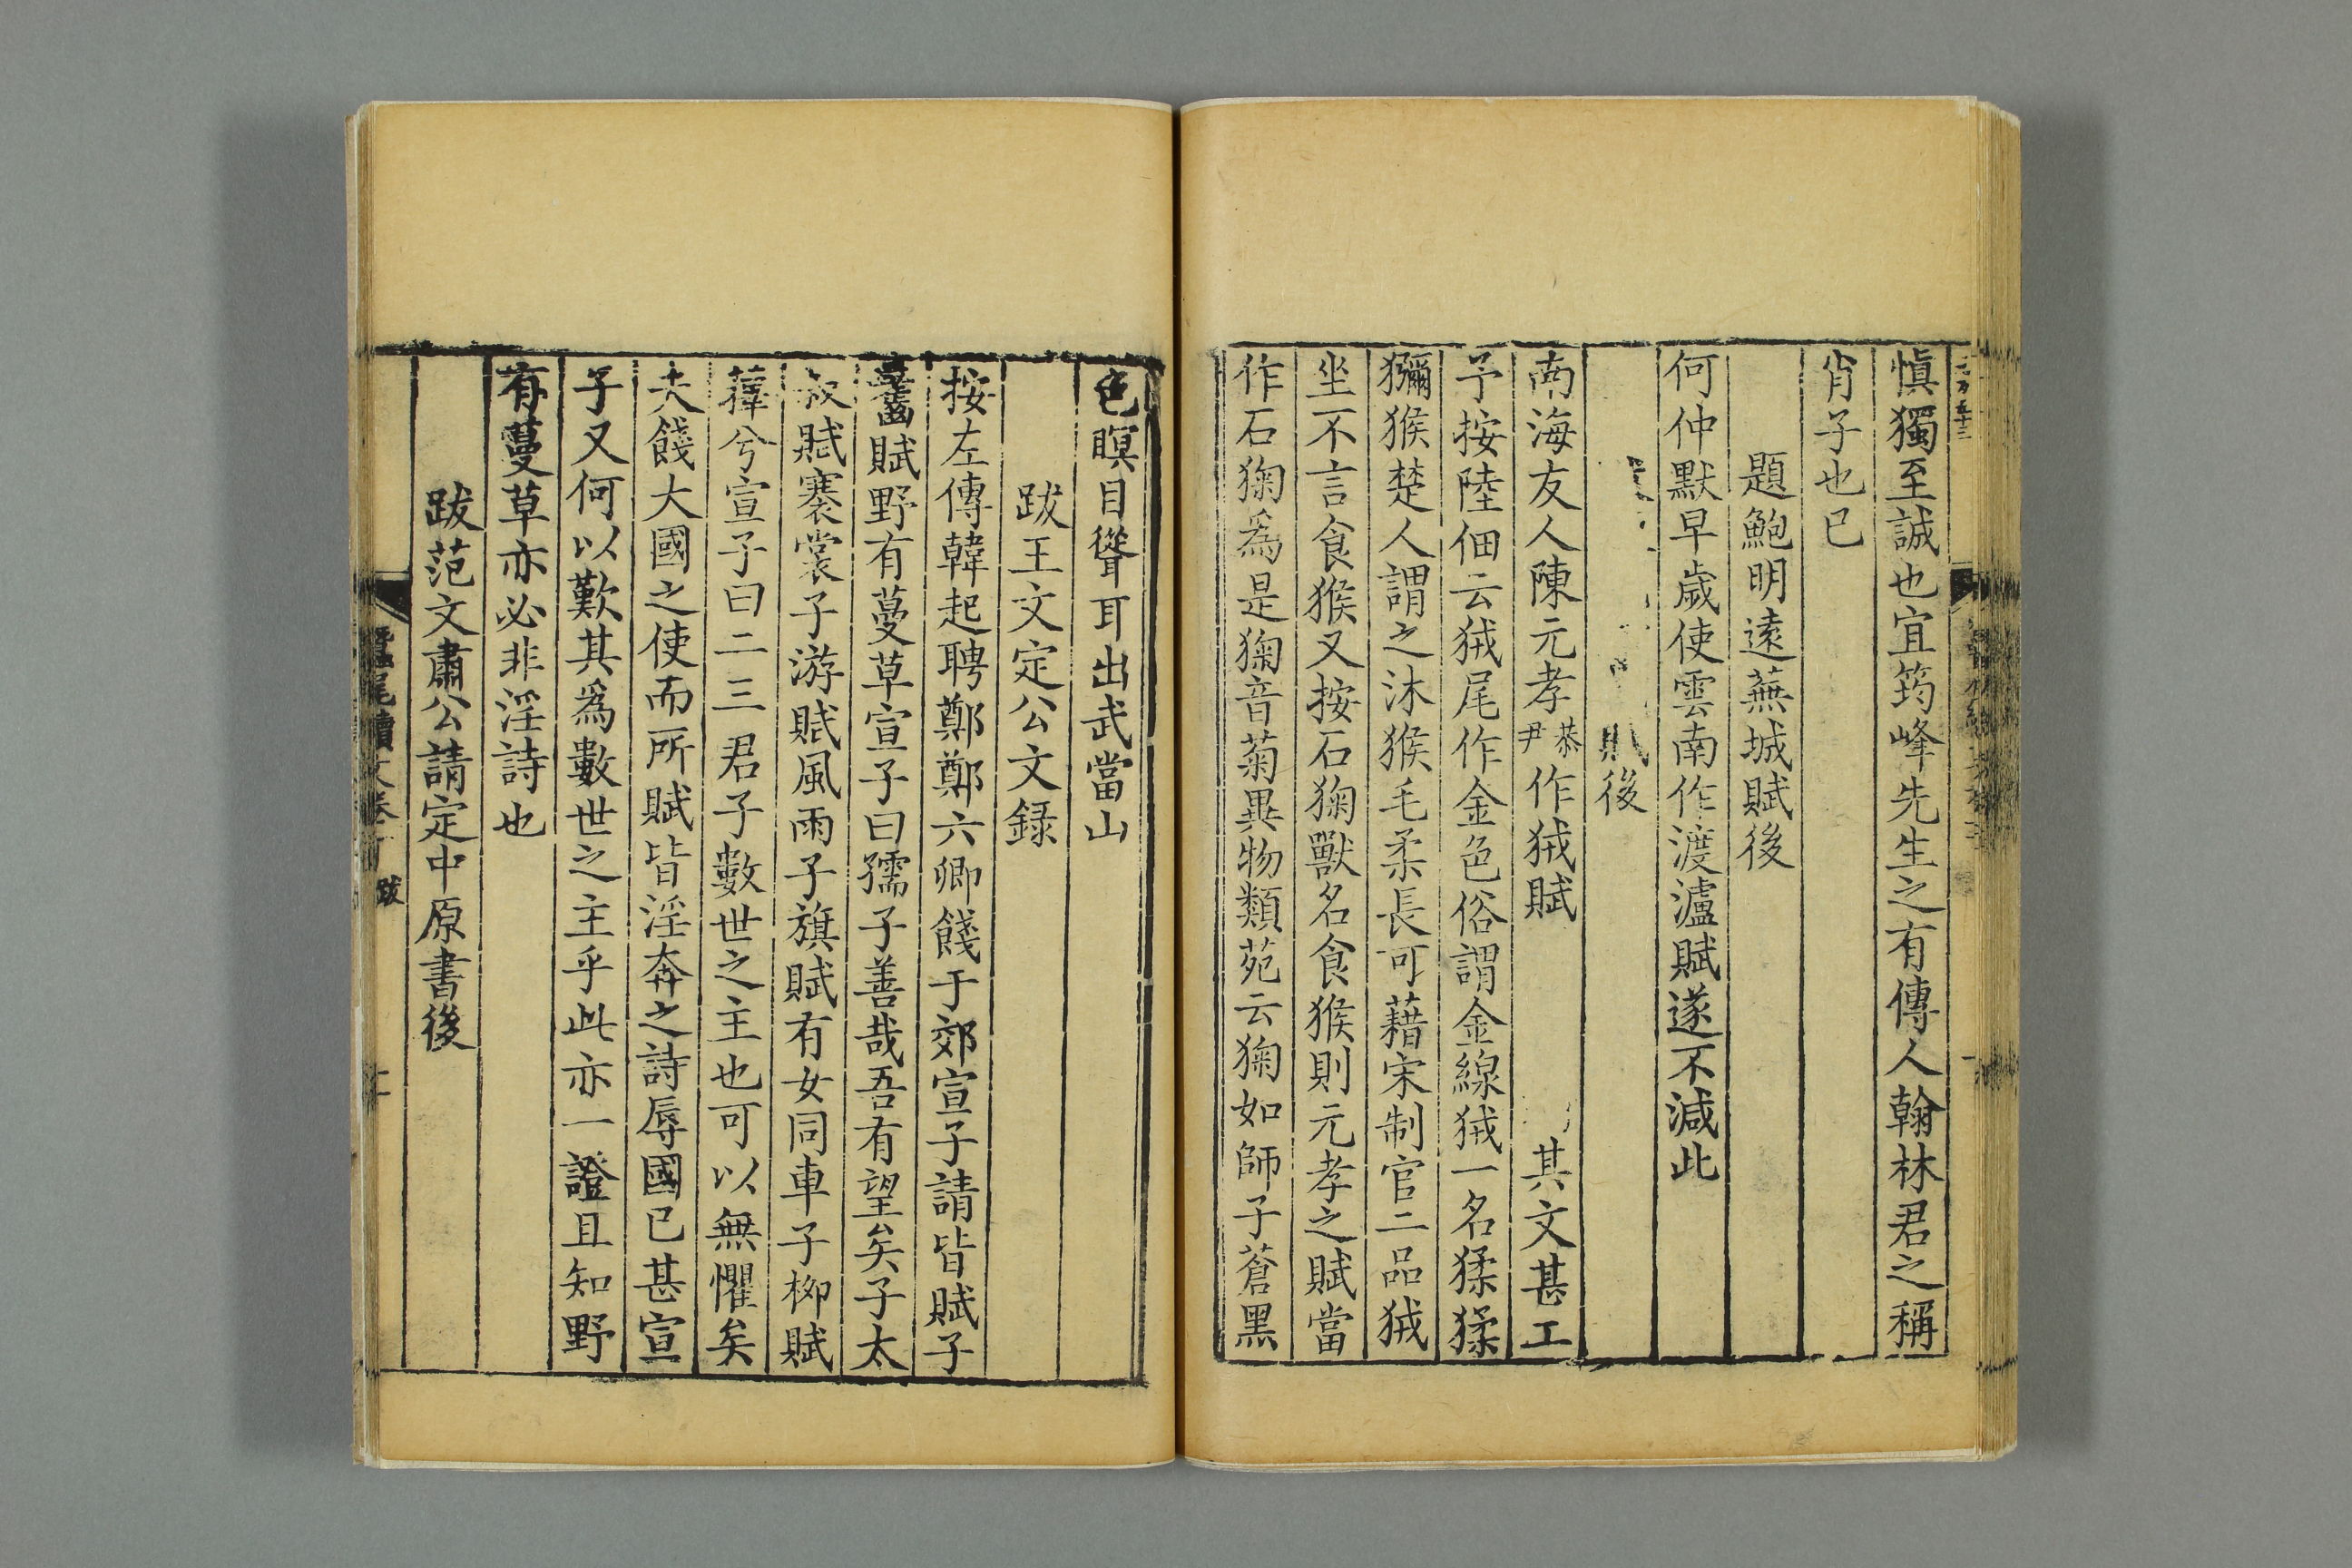 慎獨至誠也宜筠峰先生之有傳人翰林君之稱
肖子也已
題鮑明遠蕪城賦後
何仲默早歲使雲南作渡瀘賦遂不減此
賦後
南海友人陳元孝恭尹作狨賦其文甚工
予按陸佃云狨尾作金色俗謂金線狨一名猱猱
獼猴楚人謂之沐猴毛柔長可藉宋制官二品狨
坐不言食猴又按石㺀獸名食猴則元孝之賦當
作石㺀爲是㺀音菊異物類苑云㺀如師子蒼黑
色瞑目聳耳出武當山
跋王文定公文録
按左傳韓起聘鄭鄭六卿餞于郊宣子請皆賦子
齹賦野有蔓草宣子曰孺子善哉吾有望矣子太
叔賦褰裳子游賦風雨子旗賦有女同車子柳賦
蘀兮宣子曰二三君子數世之主也可以無懼矣
夫餞大國之使而所賦皆淫奔之詩辱國已甚宣
子又何以歎其爲數世之主乎此亦一證且知野
有蔓草亦必非淫詩也
跋范文肅公請定中原書後
蠶尾續文卷
跋